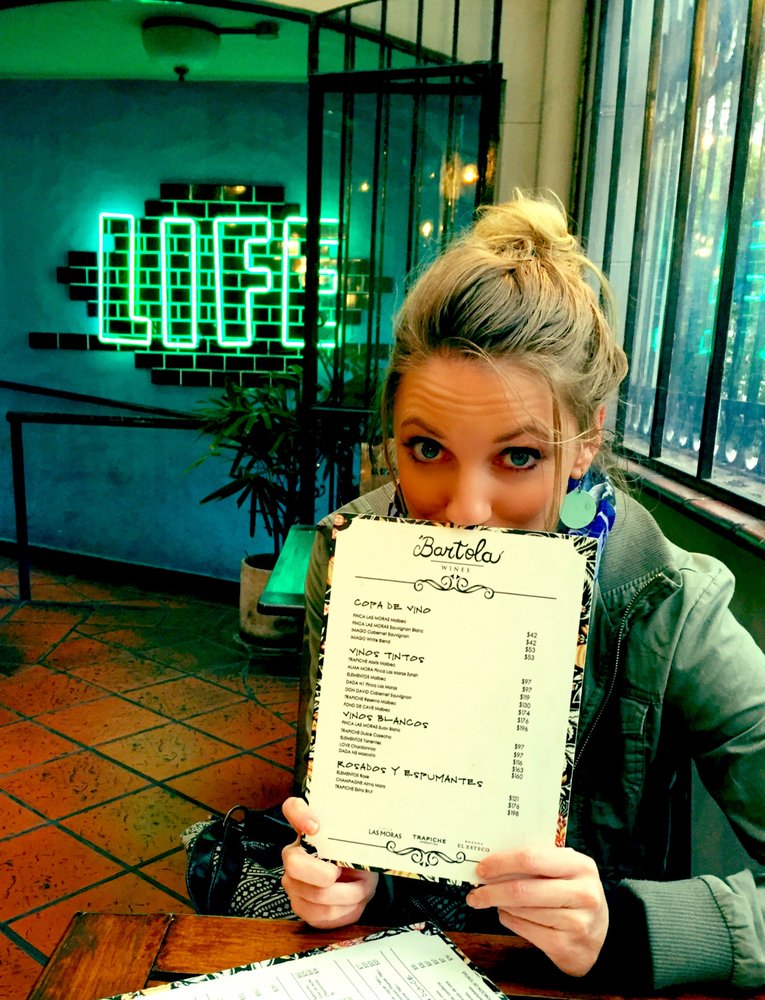 LIFE
Bartola
WINES
COPA DE VINO
FINCA LAS MORAS Malbec $42
FINCA LAS MORAS Sauvignon Blanc $42
IMAGO Cabernet Sauvignon $53
IMAGO White Blend $53
VINOS TINTOS
TRAPICHE Malbec $97
ALMA MORA Finca Las Moras Syrah $97
ELEMENTOS Malbec $119
DADA N1 Finca Las Moras $130
DON DAVID Cabernet Sauvignon $174
TRAPICHE Reserva Malbec $176
FOND DE CAVE Malbec $196
VINOS BLANCOS
FINCA LAS MORAS Blanc $97
TRAPICHE Dulce Cosecha $97
ELEMENTOS Torrontes $116
LOVE Chardonnay $163
DADA N8 Moscato $160
ROSADOS Y ESPUMANTES
ELEMENTOS Rose $121
CHAMPAGNE Alma Mora $176
TRAPICHE Extra Brut $198
LAS MORAS TRAPICHE EL ESTECO